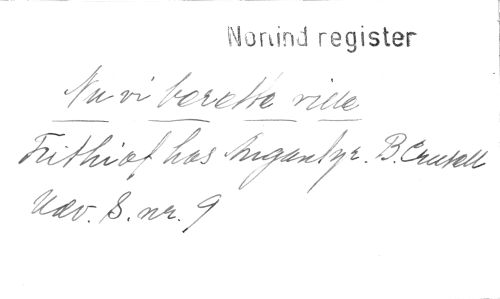 Norlind register
Nu vi berette ville
Frithiof hos Angantyr. B. Crusell
Udv. S. nr. 9